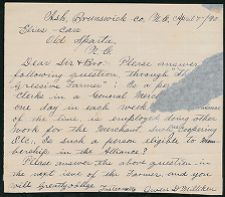 Ash, Brunswick Co, N.C, April 7/90
Old Sparta,
N.C.
Dear Sir & Bro: Please answer
following question, through
gressive Farmer": Is a per
clerks in a General Merc
one day in each week
of the time, is employed doing other
work for the Merchant, such as Coopering
Etc. Is such a person eligible to Mem
bership in the Alliance?
Please answer the above question in
the next issue of the Farmer, and you
will Greatly oblige Fraternally